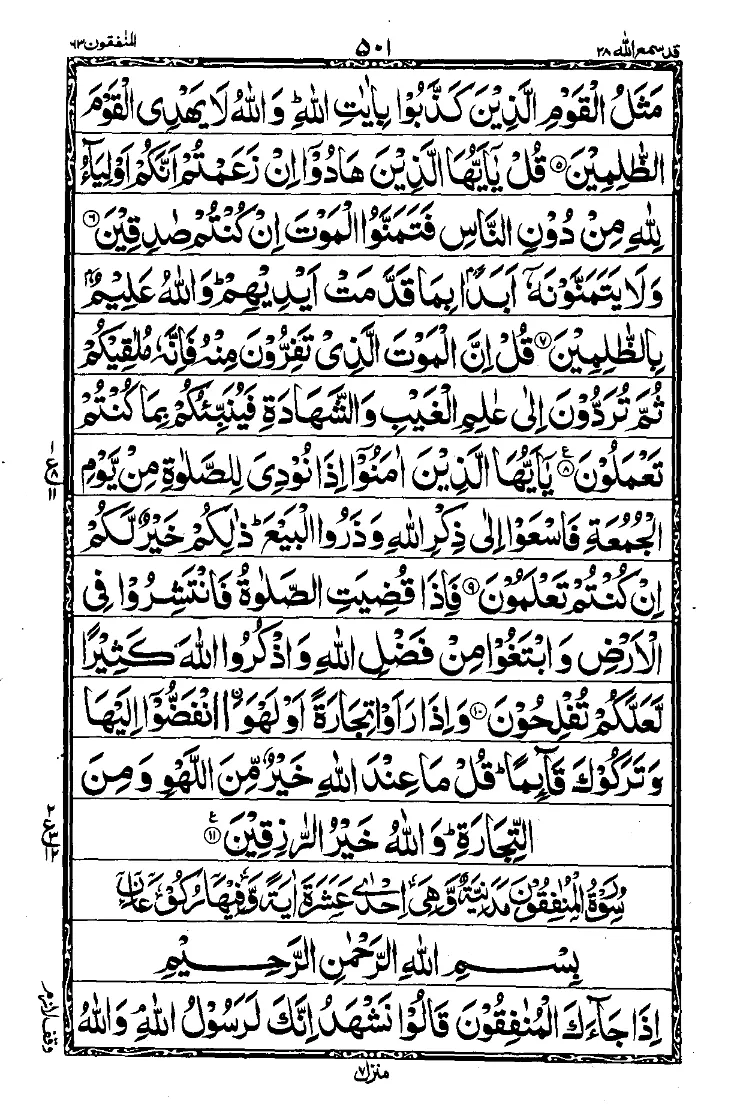 قد سمع الله ٢٨
٥٠١
المنٰفقون ٦٣
مَثَلُ الْقَوْمِ الَّذِيْنَ كَذَّبُوْا بِاٰيٰتِ اللّٰهِ ؕ وَاللّٰهُ لَا يَهْدِى الْقَوْمَ
الظّٰلِمِيْنَ ۝۵ قُلْ يٰۤاَيُّهَا الَّذِيْنَ هَادُوْۤا اِنْ زَعَمْتُمْ اَنَّكُمْ اَوْلِيَآءُ
لِلّٰهِ مِنْ دُوْنِ النَّاسِ فَتَمَنَّوُا الْمَوْتَ اِنْ كُنْتُمْ صٰدِقِيْنَ ۝۶
وَلَا يَتَمَنَّوْنَهٗۤ اَبَدًۢا بِمَا قَدَّمَتْ اَيْدِيْهِمْ ؕ وَاللّٰهُ عَلِيْمٌۢ
بِالظّٰلِمِيْنَ ۝۷ قُلْ اِنَّ الْمَوْتَ الَّذِىْ تَفِرُّوْنَ مِنْهُ فَاِنَّهٗ مُلٰقِيْكُمْ
ثُمَّ تُرَدُّوْنَ اِلٰى عٰلِمِ الْغَيْبِ وَالشَّهَادَةِ فَيُنَبِّئُكُمْ بِمَا كُنْتُمْ
تَعْمَلُوْنَ ۝۸ ع يٰۤاَيُّهَا الَّذِيْنَ اٰمَنُوْۤا اِذَا نُوْدِىَ لِلصَّلٰوةِ مِنْ يَّوْمِ
الْجُمُعَةِ فَاسْعَوْا اِلٰى ذِكْرِ اللّٰهِ وَذَرُوا الْبَيْعَ ؕ ذٰلِكُمْ خَيْرٌ لَّكُمْ
اِنْ كُنْتُمْ تَعْلَمُوْنَ ۝۹ فَاِذَا قُضِيَتِ الصَّلٰوةُ فَانْتَشِرُوْا فِى
الْاَرْضِ وَابْتَغُوْا مِنْ فَضْلِ اللّٰهِ وَاذْكُرُوا اللّٰهَ كَثِيْرًا
لَّعَلَّكُمْ تُفْلِحُوْنَ ۝۱۰ وَاِذَا رَاَوْا تِجَارَةً اَوْ لَهْوَاۨ انْفَضُّوْۤا اِلَيْهَا
وَتَرَكُوْكَ قَآئِمًا ؕ قُلْ مَا عِنْدَ اللّٰهِ خَيْرٌ مِّنَ اللَّهْوِ وَمِنَ
التِّجَارَةِ ؕ وَاللّٰهُ خَيْرُ الرّٰزِقِيْنَ ۝۱۱ ع
سُوْرَةُ الْمُنٰفِقُوْنَ مَدَنِيَّةٌ وَّهِىَ اِحْدٰى عَشَرَةَ اٰيَةً وَّفِيْهَا رُكُوْعَانِ
بِسْمِ اللّٰهِ الرَّحْمٰنِ الرَّحِيْمِ
اِذَا جَآءَكَ الْمُنٰفِقُوْنَ قَالُوْا نَشْهَدُ اِنَّكَ لَرَسُوْلُ اللّٰهِ ۘ وَاللّٰهُ
منزل ٧